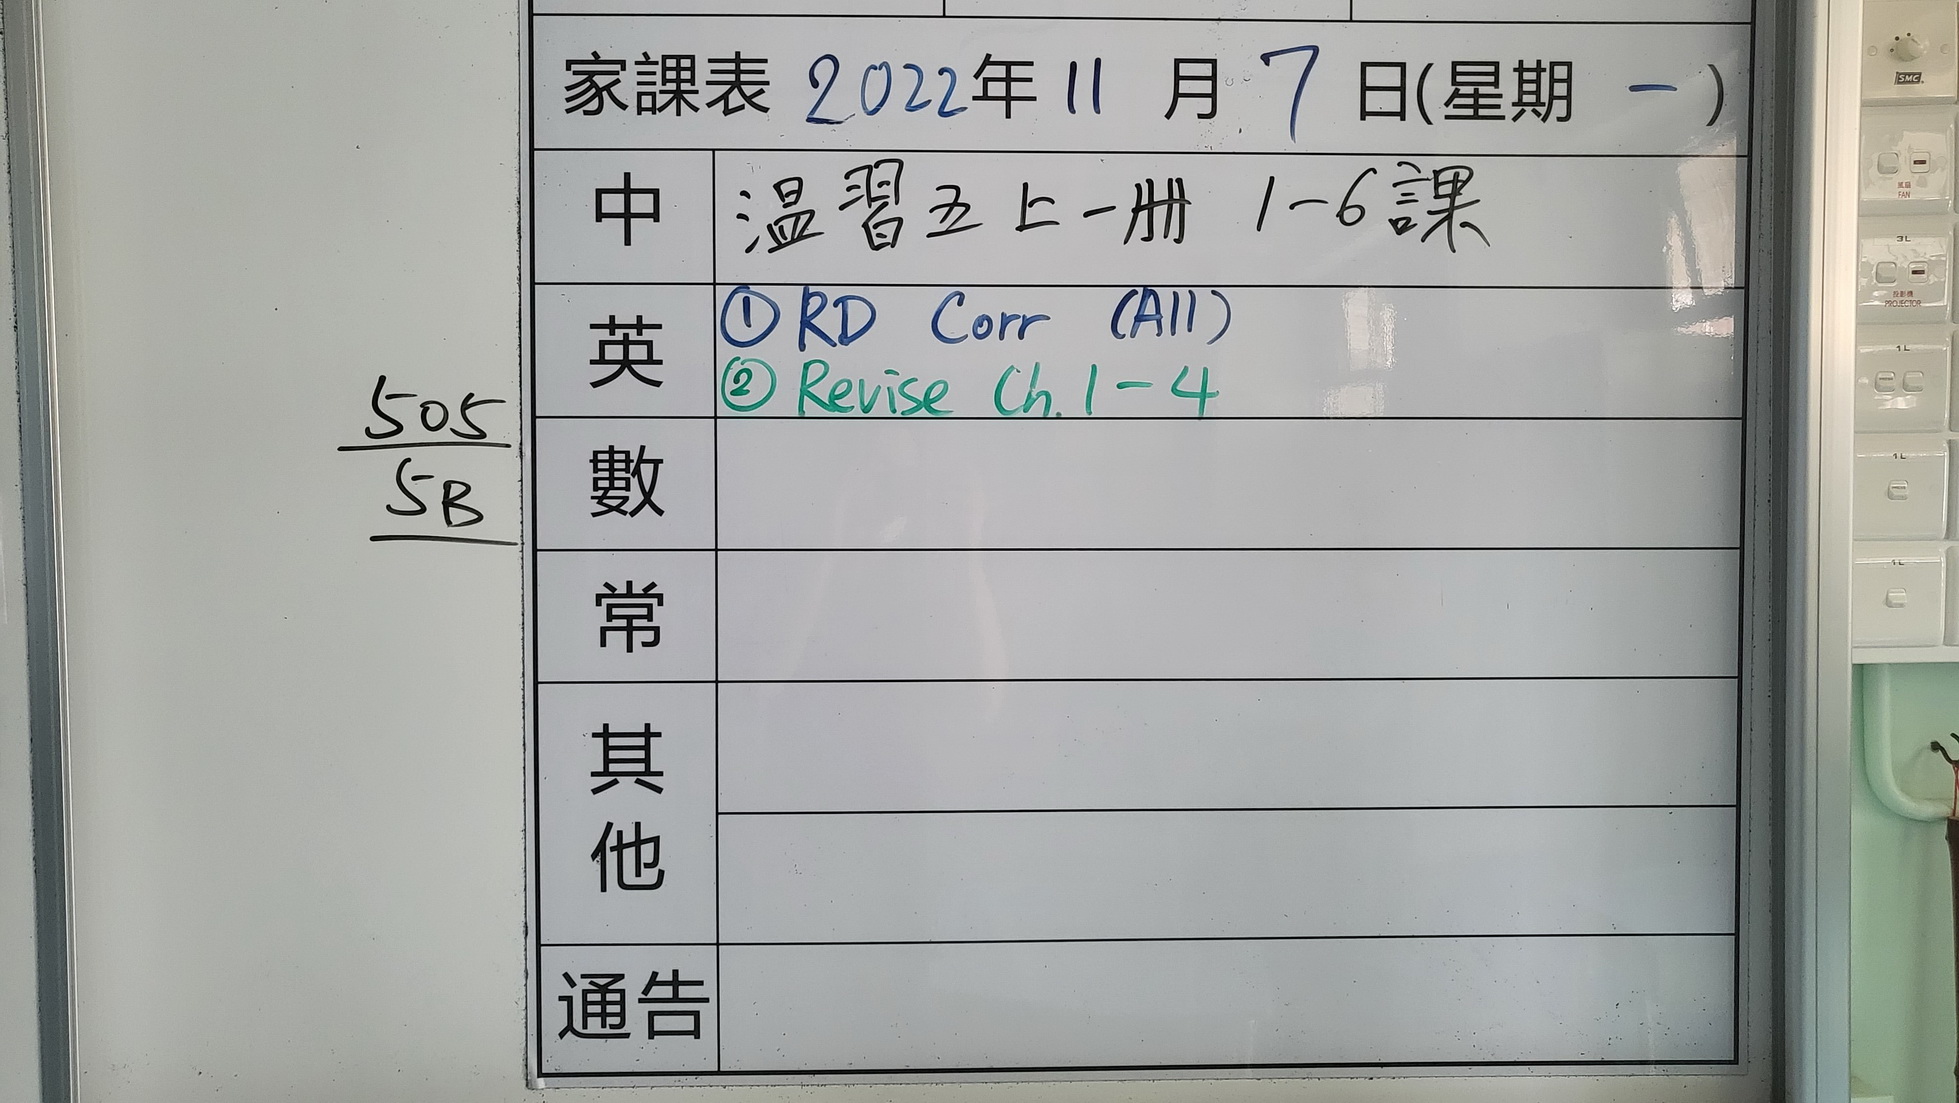 家課表 2022年 11 月 7 日(星期 一 )
中 温習五上一冊 1-6課
英 ① RD Corr (All)
② Revise Ch.1-4
505
5B
數
常
其他
通告
SMC
風扇
FAN
3L
投影機
PROJECTOR
1L
1L
1L